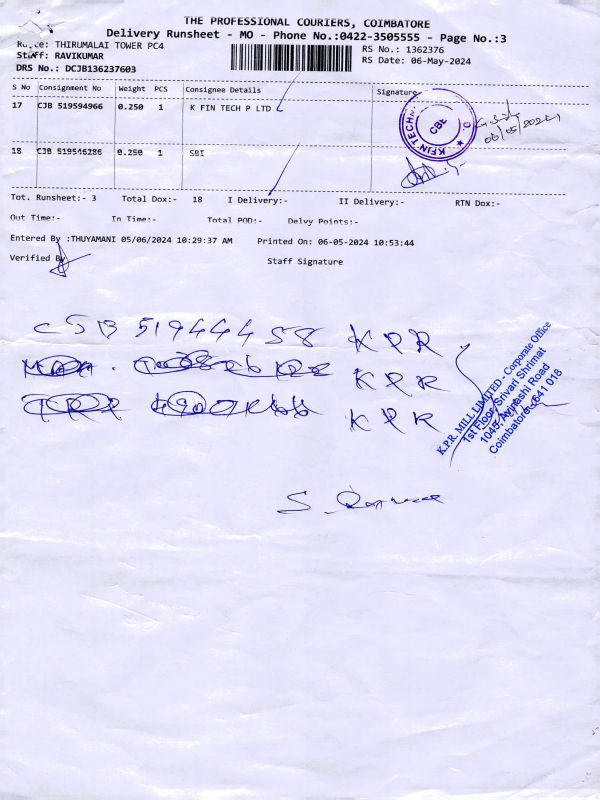 THE PROFESSIONAL COURIERS, COIMBATORE
Delivery Runsheet - MO - Phone No.:0422-3505555 - Page No.:3
Route: THIRUMALAI TOWER PC4
RS No.: 1362376
Staff: RAVIKUMAR
RS Date: 06-May-2024
DRS No.: DCJB136237603
S No Consignment No Weight PCS Consignee Details Signature
17 CJB 519594966 0.250 1 K FIN TECH P LTD
KFIN TECHN
CBE
06/05/2024
18 CJB 519546286 0.250 1 SBI
Tot. Runsheet:- 3 Total Dox:- 18 I Delivery:- II Delivery:- RTN Dox:-
Out Time:- In Time:- Total POD:- Delvy Points:-
Entered By :THUYAMANI 05/06/2024 10:29:37 AM Printed On: 06-05-2024 10:53:44
Verified By
Staff Signature
CJB 519444458 KPR
KPR
KPR
K.P.R. MILL LIMITED - Corporate Office
1st Floor, Srivari Shrimat
1045, Avinashi Road
Coimbatore - 641 018
S